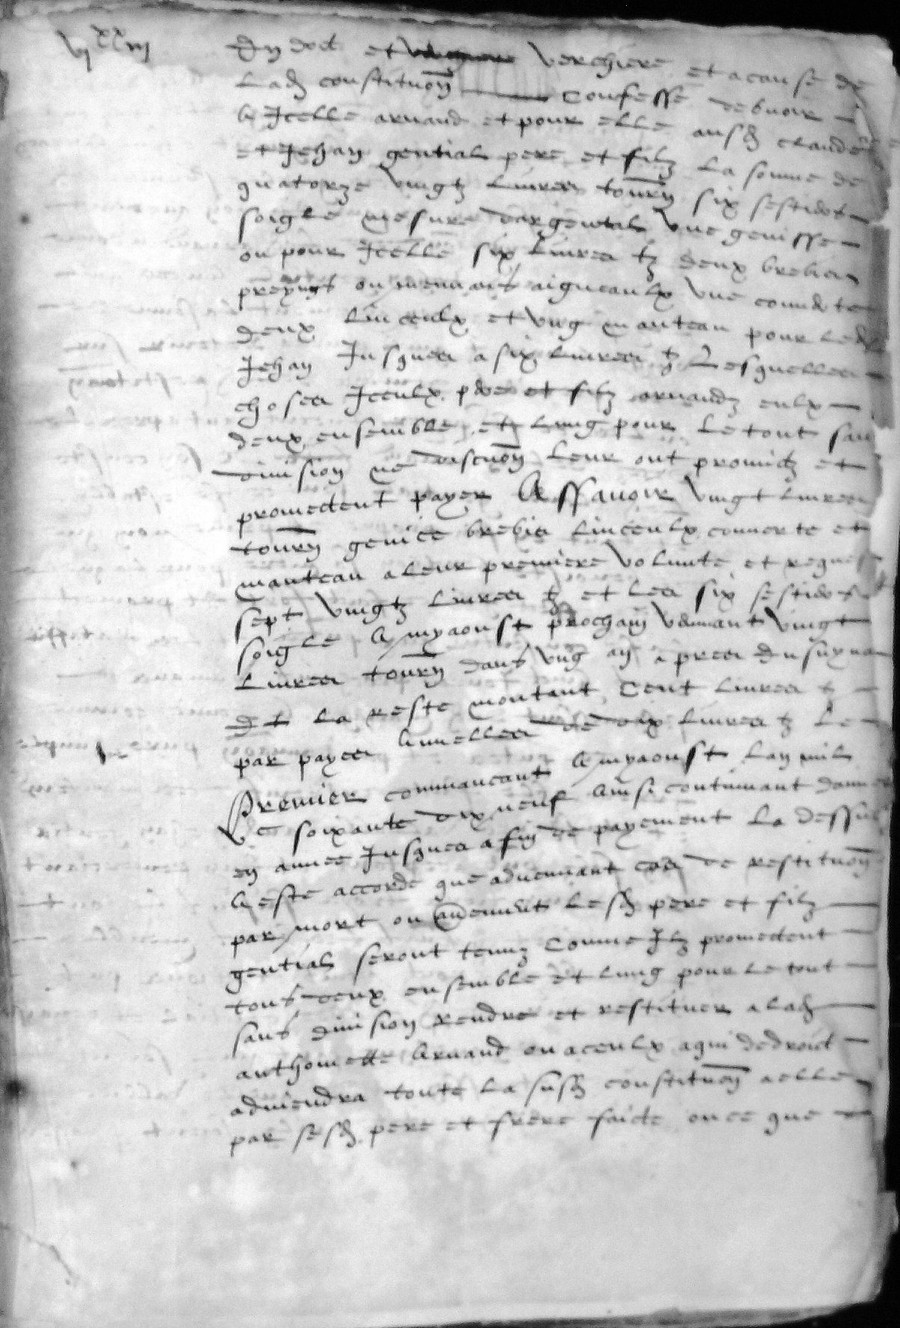 vi xx vi
En dot et verchiere et a cause de
lad constituon confesse debvoir
a Icelle arnaud et pour elle ausd claude
et Jehan gential pere et filz la somme de
quatorze vingtz livres tourn six sestiers
soigle mesure dargental une genisse
ou pour Icelle six livres tz deux brebies
ou aigneaulx une couverte
deux linceulx et ung manteau pour led
Jehan Jusques a six livres tz Lesquelles
choses Iceulx pere et filz arnaudz eulx
deux ensemble et lung pour le tout sans
division ne discuon leur ont promis et
promectent payer Assavoir vingt livres
tourn genice brebis linceulx couverte et
manteau a leur premiere volunte et requeste
sept vingtz livres tz et les six sestiers
soigle a myaoust prochain venant vingt
livres tourn dans ung an apres Ensuyvant
Et la reste montant Cent livres tz
par payes annuelles de dix livres tz Le
Premier commancant a myaoust lan mil
Vc soixante dix neuf ainsi continuant dannee
en annee Jusques a fin de payement La dessus
a este accorde que advenant cas de restituon
par mort ou lesd pere et filz
gential seront tenuz Comme Ilz promectent
tous deux ensemble et lung pour le tout
sans division Rendre et restituer a lad
anthoinette Arnaud ou a ceulx a qui de droict
adviendra toute la susd constituon a elle
par sesd pere et frere faicte ou ce que